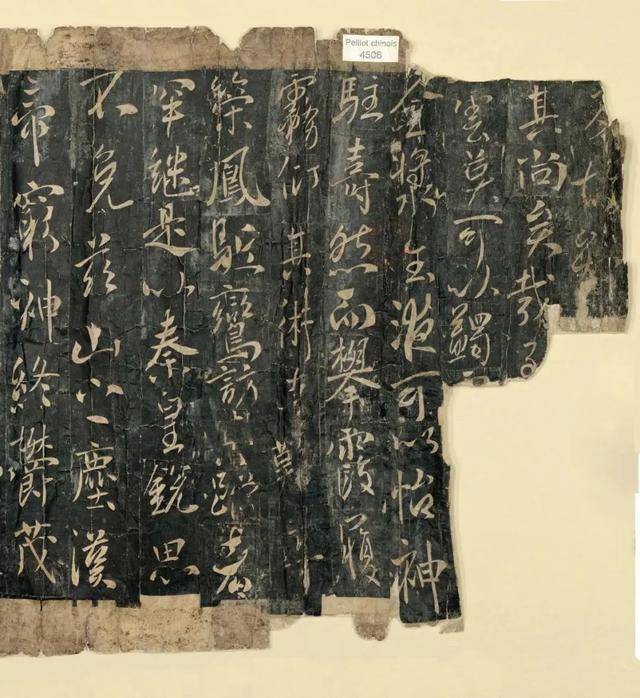 Pelliot chinois
4508
其尚矣哉
雲莫可以蠲
金漿玉液可以怡神
駐壽然而攀霞履
霧仰其術者莫
鳳駈鸞訪其蹤者
罕継是以秦皇銳思
不免兹山之塵漢
帝窮神終鬱茂